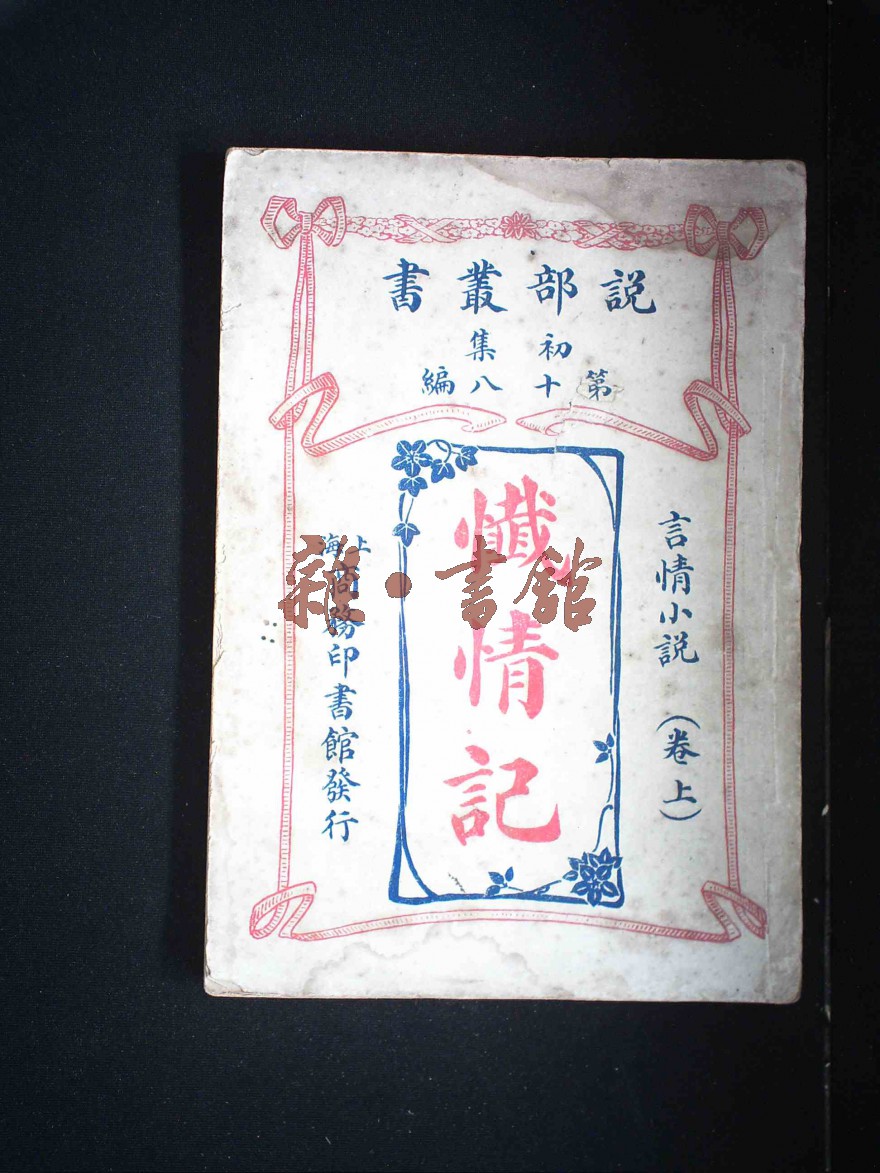 説部叢書
初集
第十八編
言情小説（卷上）
懺情記
上海商務印書館發行
雜·書館